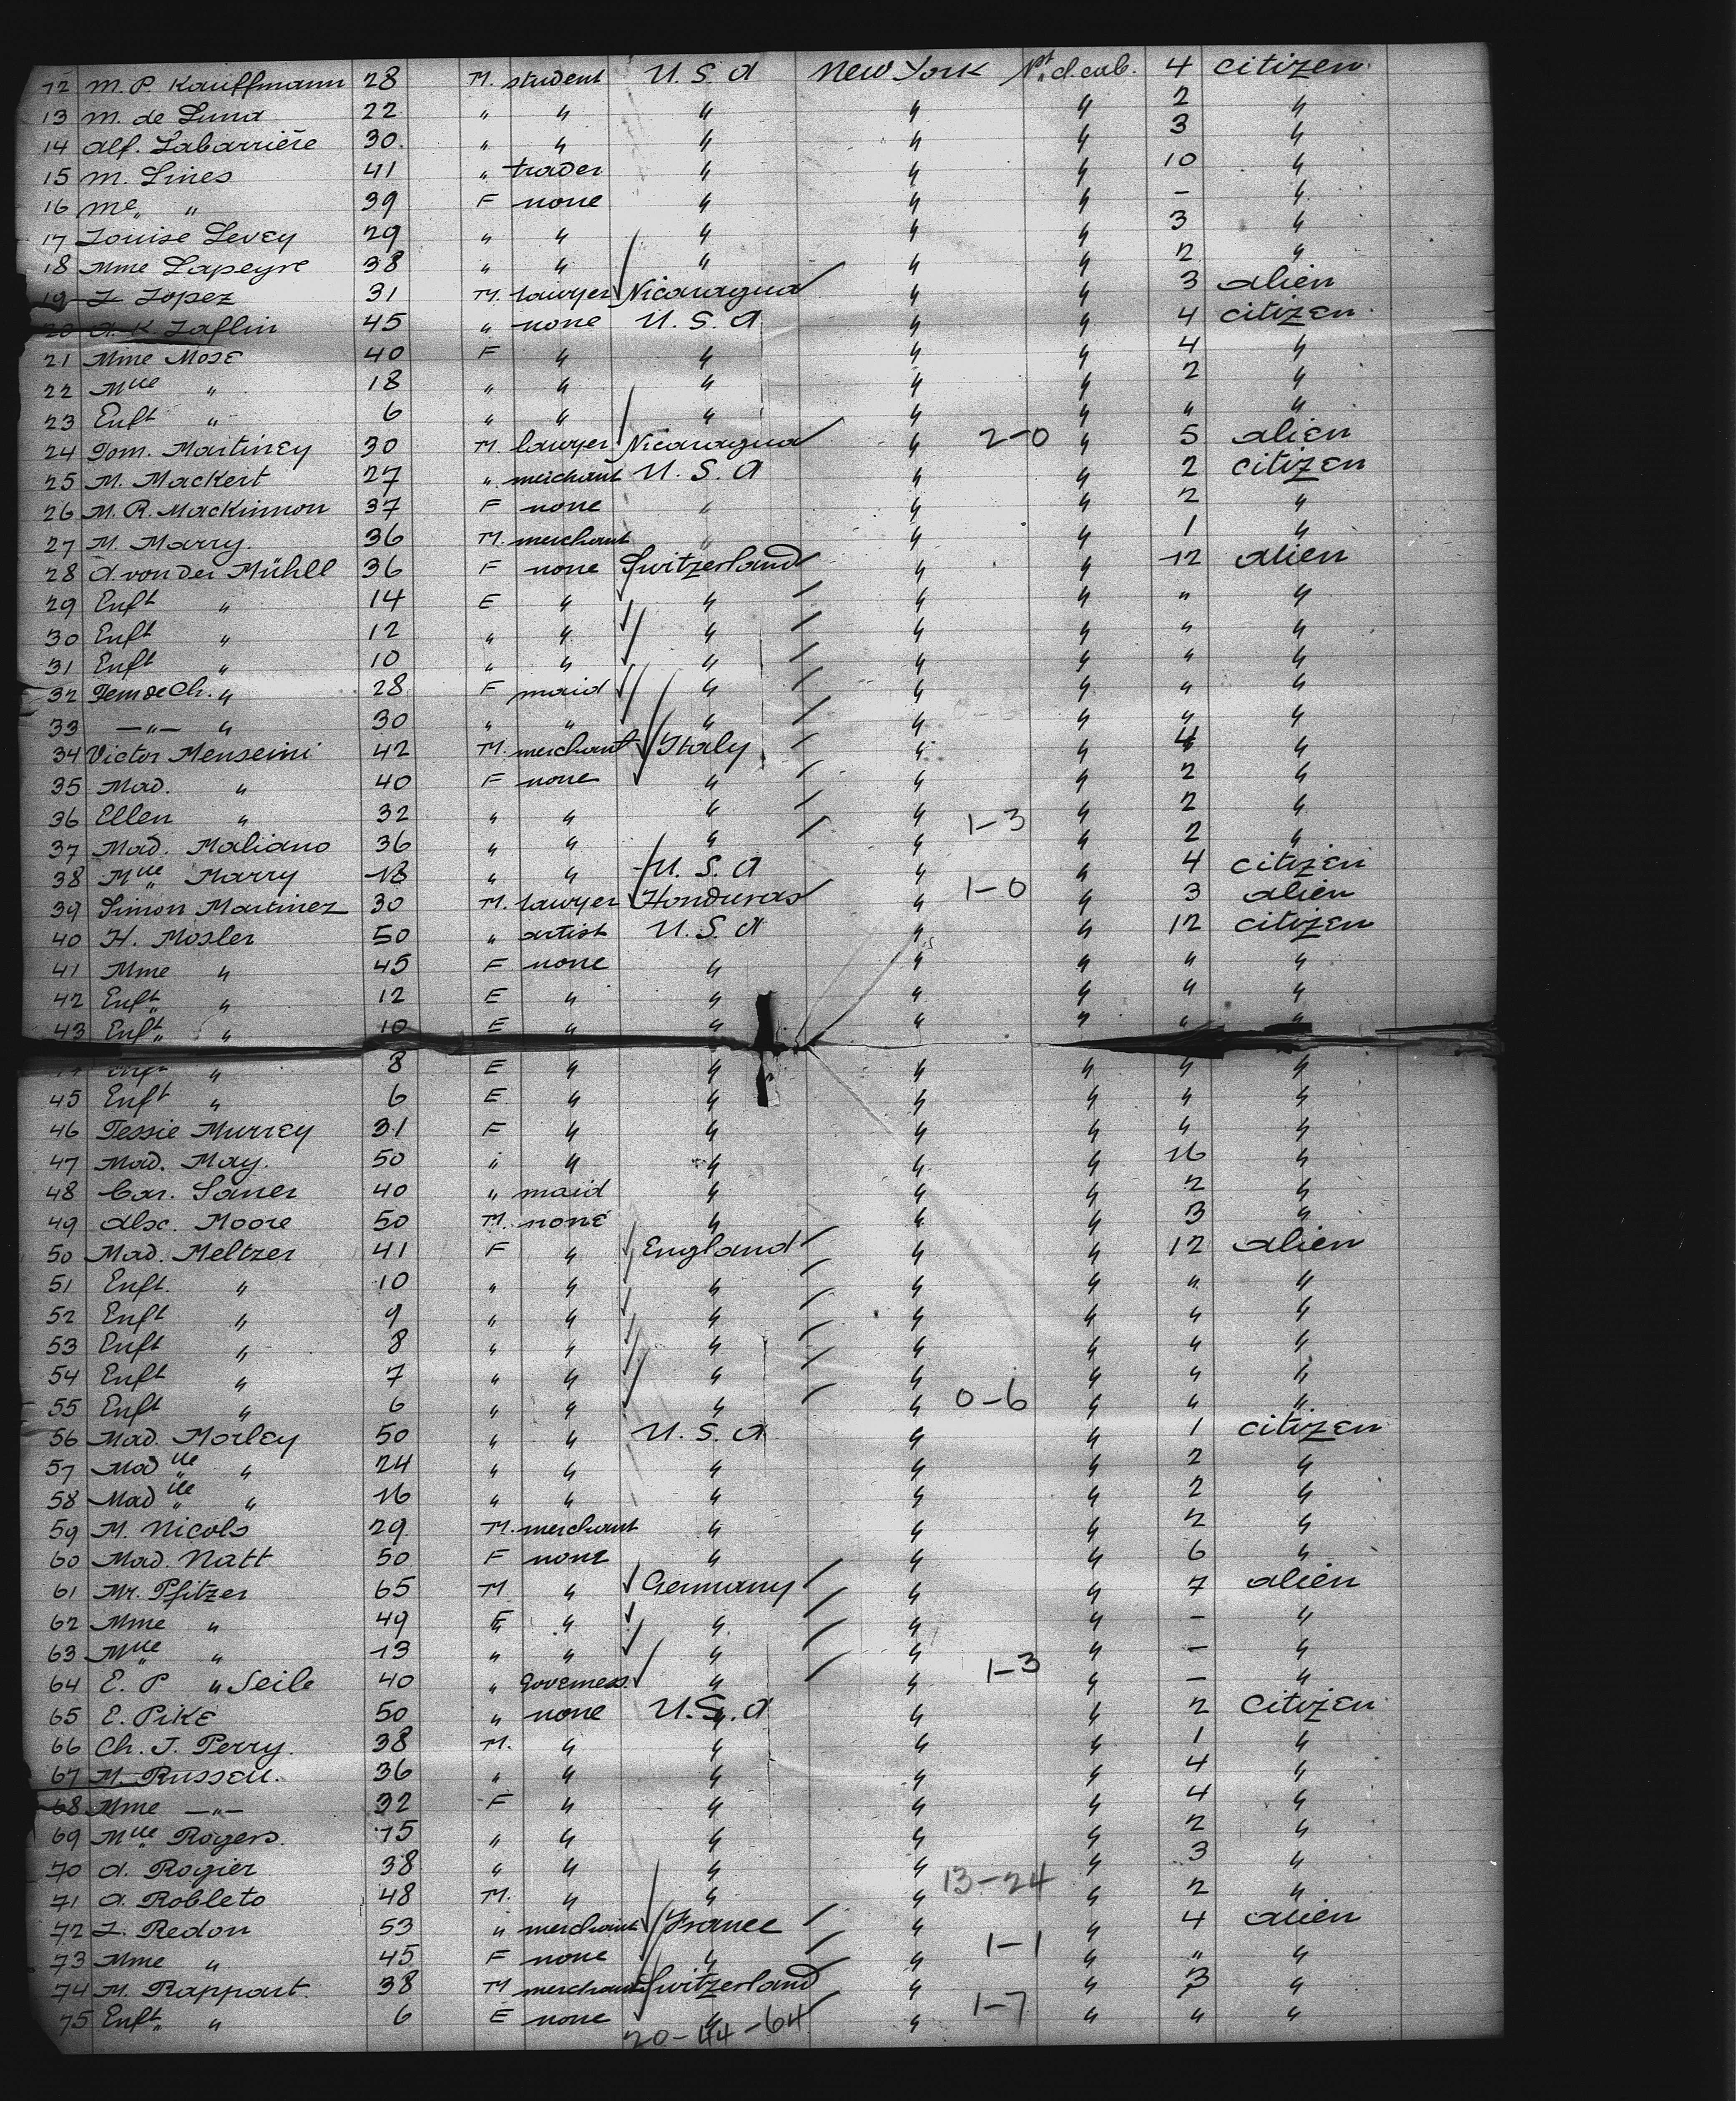 12 M. P. Kauffmann 28 M. student U. S. A New York 1st cl. cab. 4 citizen.
13 M. de Luna 22 " " " " " 2 "
14 Alf. Labarriére 30. " " " " " 3 "
15 M. Lines 41 " trader " " " 10 "
16 Me " 39 F none " " " - "
17 Louise Levey 29 " " " " " 3 "
18 Mme Lapeyre 38 " " " " " 2 "
19 L Lopez 31 M. lawyer Nicaragua " " 3 alien
20 A. K Laflin 45 " none U. S. A " " 4 citizen
21 Mme Mose 40 F " " " " 4 "
22 Mlle " 18 " " " " " 2 "
23 Enft " 6 " " " " " " "
24 Dom. Martiney 30 M. lawyer Nicaragua " 2-0 " 5 alien
25 M. Mackert 27 " merchant U. S. A " " 2 citizen
26 M. R. MacKinnon 37 F none " " " 2 "
27 M. Marry. 36 M. merchant " " " 1 "
28 A. von der Mühll 36 F none Switzerland " " 12 alien
29 Enft " 14 E " " " " " "
30 Enft " 12 " " " " " " "
31 Enft " 10 " " " " " " "
32 Fem de Ch. " 28 F maid " " " " "
33 -"- " 30 " " " " " " "
34 Victor Menseini 42 M. merchant Italy " " 4 "
35 Mad. " 40 F none " " " 2 "
36 Ellen " 32 " " " " 1-3 " 2 "
37 Mad. Maliano 36 " " " " " 2 "
38 Mlle Marry 18 " " U. S. A " " 4 citizen
39 Simon Martinez 30 M. lawyer Honduras " 1-0 " 3 alien
40 H. Mosler 50 " artist U. S. A " " 12 citizen
41 Mme " 45 F none " " " " "
42 Enft " 12 E " " " " " "
43 Enft " 10 E " " " " " "
" 8 E " " " " " "
45 Enft " 6 E " " " " " "
46 Tessie Murrey 31 F " " " " " "
47 Mad. May. 50 " " " " " 16 "
48 Car. Saner 40 " maid " " " 2 "
49 Alx. Moore 50 M. none " " " 3 "
50 Mad. Meltzer 41 F " England " " 12 alien
51 Enft. " 10 " " " " " " "
52 Enft " 9 " " " " " " "
53 Enft " 8 " " " " " " "
54 Enft " 7 " " " " " " "
55 Enft " 6 " " " " 0-6 " " "
56 Mad. Morley 50 " " U. S. A " " 1 citizen
57 Mad lle " 24 " " " " " 2 "
58 Mad lle " 16 " " " " " 2 "
59 M. Nicols 29. M. merchant " " " 2 "
60 Mad. Natt 50 F none " " " 6 "
61 Mr. Pfitzer 65 M " Germany " " 7 alien
62 Mme " 49 F " " " " - "
63 Mlle " 13 " " " " " - "
64 E. P " Seile 40 " Governess. " " 1-3 " - "
65 E. Pike 50 " none U. S. A " " 2 citizen
66 Ch. J. Perry. 38 M. " " " " 1 "
67 M. Russell. 36 " " " " " 4 "
68 Mme -"- 32 F " " " " 4 "
69 Mlle Rogers. 15 " " " " " 2 "
70 A. Rogier 38 " " " " " 3 "
71 A. Robleto 48 M. " " " 13-24 " 2 "
72 L. Redon 53 " merchant France " " 4 alien
73 Mme " 45 F none " " 1-1 " " "
74 M. Rappart. 38 M merchant Switzerland " " 3 "
75 Enft " 6 E none " " 1-7 " " "
20-44-64